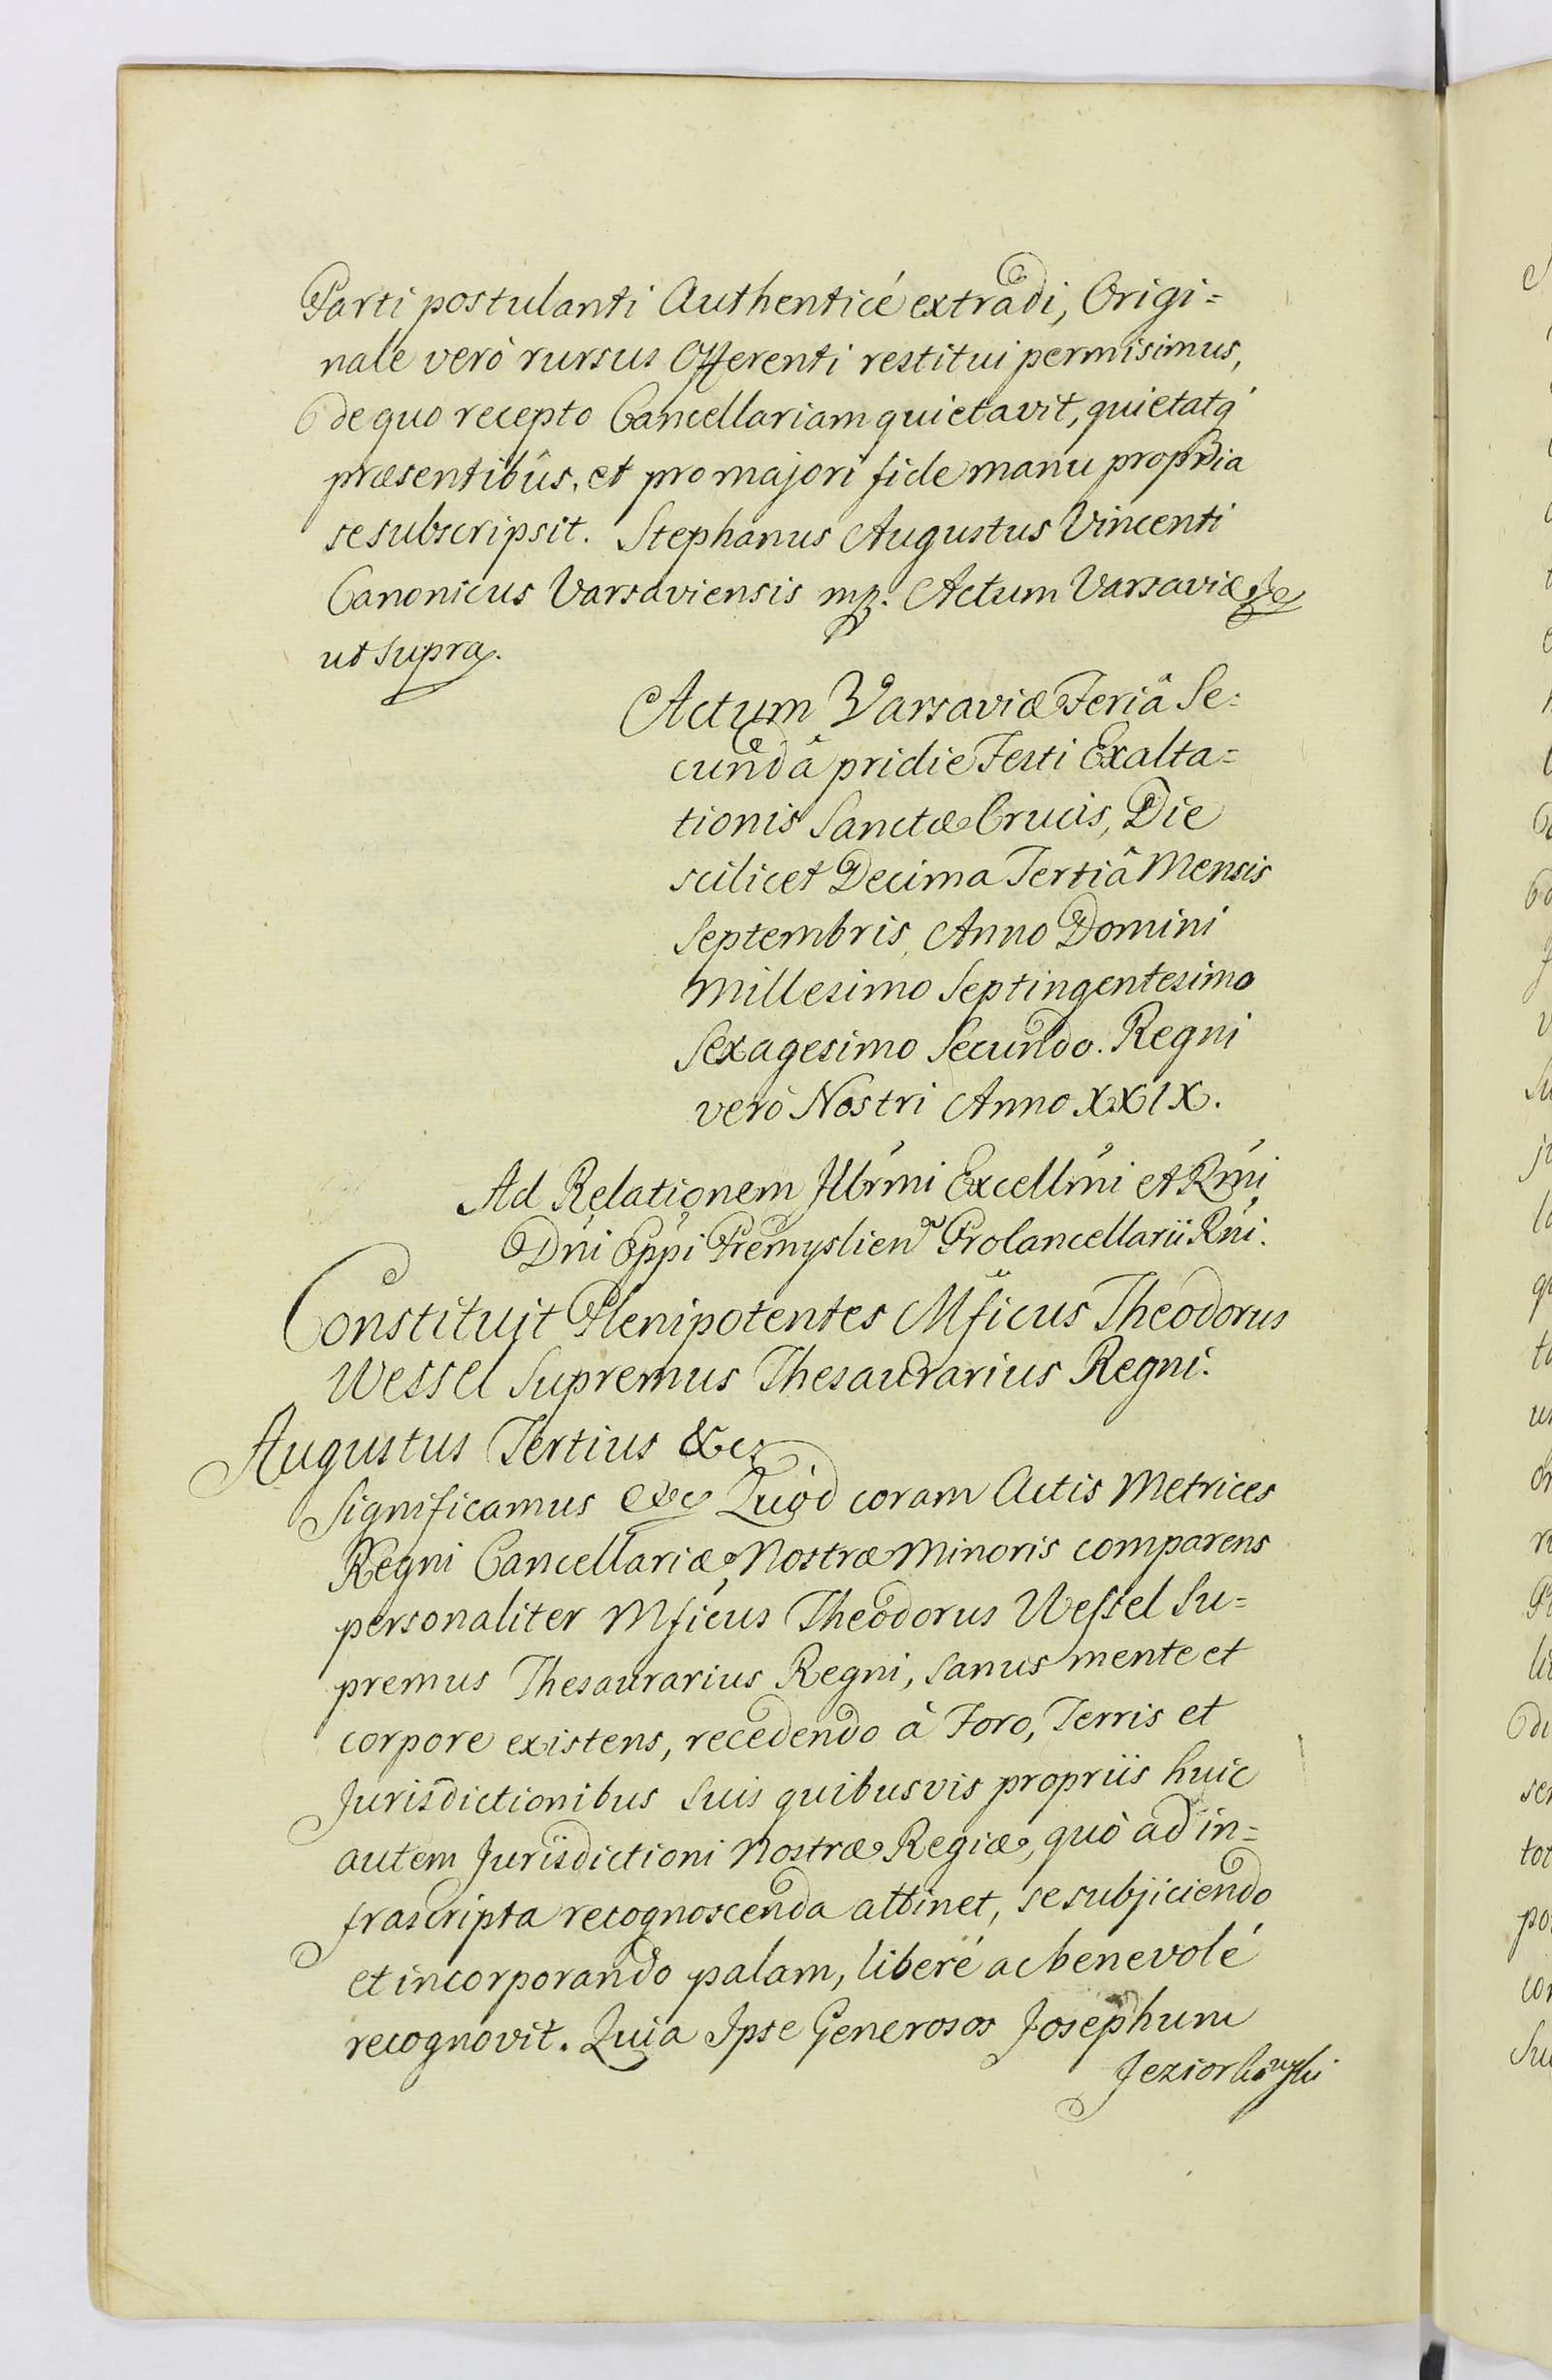 Parti postulanti Authenticé extradi, Origi=
nale verò rursus Offerenti restitui permisimus,
de quo recepto Cancellariam quietavit, quietatq́
præsentibûs, et pro majori fide manu propria
se subscripsit. Stephanus Augustus Vincenti
Canonicus Varsaviensis mp. Actum Varsaviæ
ut supra.
Actum Varsaviæ Feriâ Se=
cundâ pridie Festi Exalta=
tionis Sanctæ Crucis, Die
scilicet Decima Tertiâ Mensis
Septembris, Anno Domini
Millesimo Septingentesimo
Sexagesimo Secundo. Regni
verò Nostri Anno XXIX.
Ad Relationem Illrmi Excellmi et Rmi
Dni Eppi Premyslien Procancellarii Rni.
Constituit Plenipotentes Mficus Theodorus
Wessel Supremus Thesaurarius Regni.
Augustus Tertius &c
Significamus &c Quòd coram Actis Metrices
Regni Cancellariæ Nostræ Minoris comparens
personaliter Mficus Theodorus Wessel Su=
premus Thesaurarius Regni, sanus mente et
corpore existens, recedendo à Foro, Terris et
Jurisdictionibus suis quibusvis propriis huic
autem Jurisdictioni Nostræ Regiæ, quò ad in=
frascripta recognoscenda attinet, se subjiciendo
et incorporando palam, liberé ac benevolé
recognovit. Quia Ipse Generosos Josephum